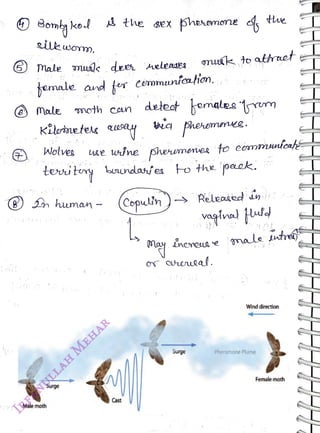 ④ Bombykol is the sex pheromone of the
silkworm.
⑤ Male musk deer releases musk to attract
female and for communication.
⑥ Male moth can detect females from
Kilometers away via pheromones.
⑦ Wolves use urine pheromones to communicate
territory boundaries to the pack.
⑧ In human - Copulin → Released in
vaginal fluid
→ May increase male
or arousal.
Wind direction
Surge
Pheromone Plume
Female moth
Surge
Cast
Male moth
MEHAR